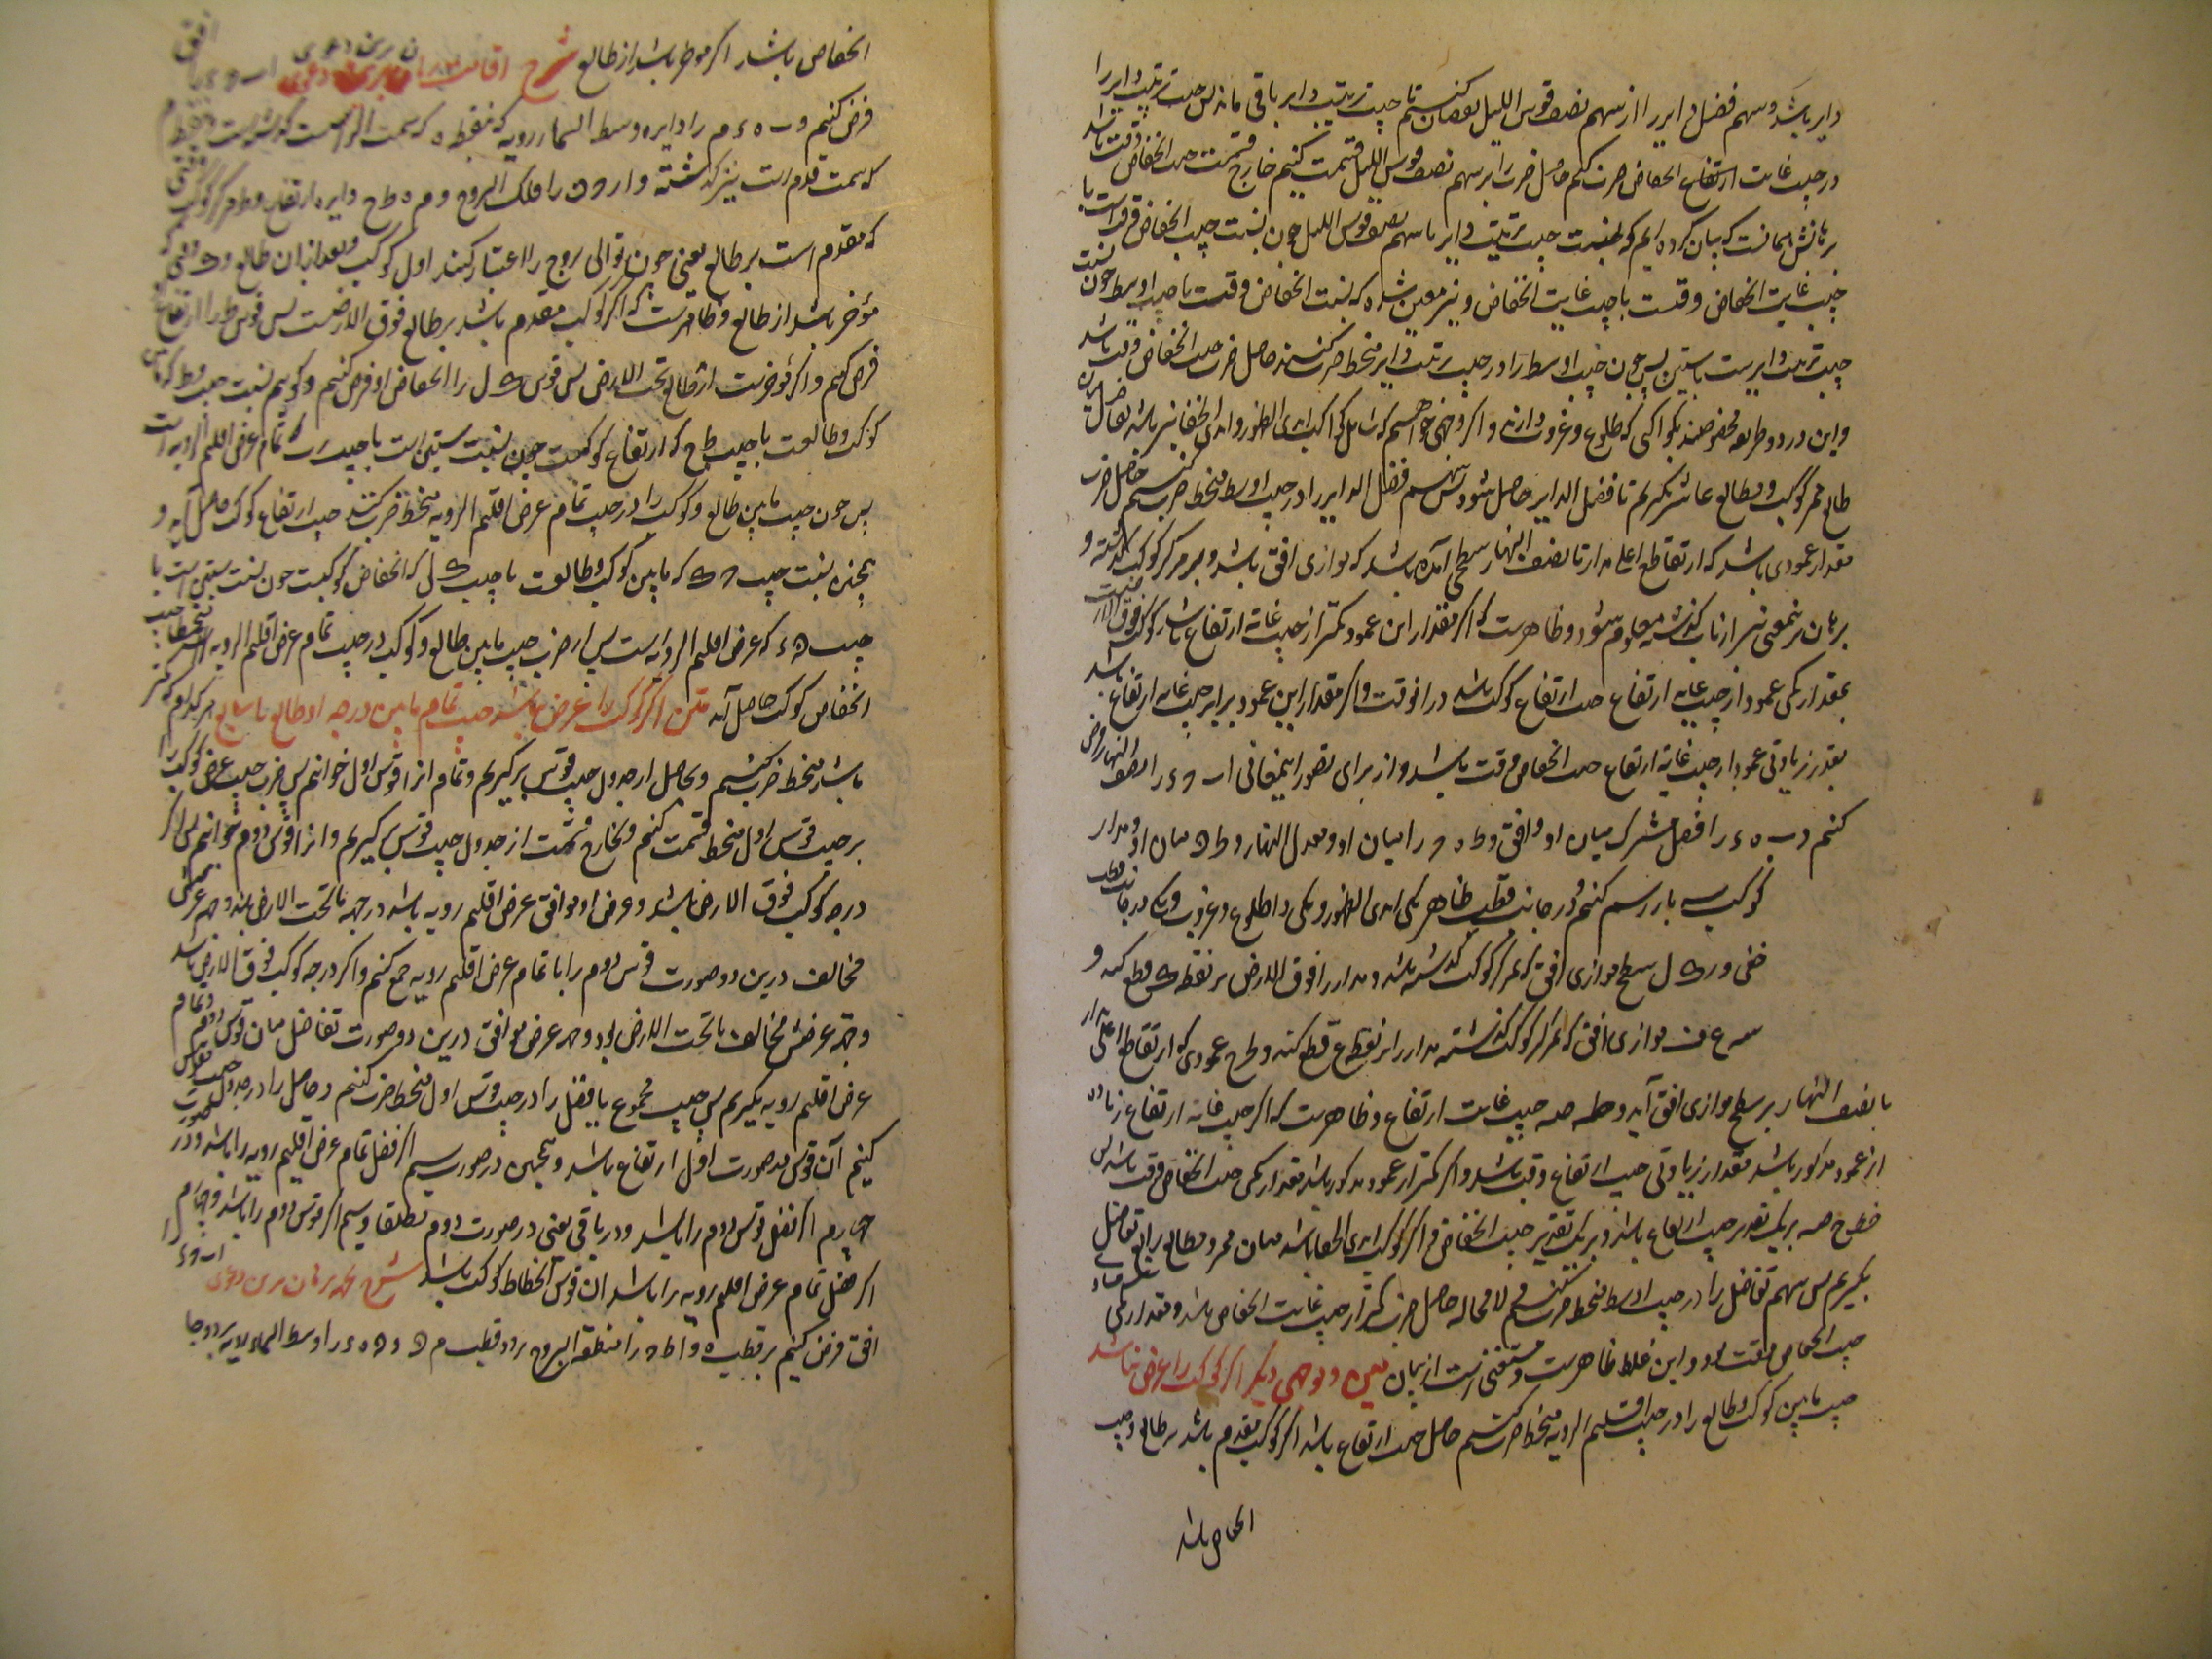 دایر باشد و سهم فضل دایر را از سهم نصف قوس اللیل نقصان کنیم تا جیب ترتیب دایر باقی ماند پس جیب ترتیب دایر را
در جیب غایت انخفاض ضرب کنیم حاصل ضرب را بر سهم نصف قوس اللیل قسمت کنیم خارج قسمت جیب انخفاض وقت باشد
برهانش همانست که بیان کرده ایم که نسبت جیب ترتیب دایر با سهم نصف قوس اللیل چون نسبت جیب انخفاض وقت است با
جیب غایت انخفاض و نیز معین شده که نسبت انخفاض وقت با جیب اوسط چون نسبت
جیب ترتیب دایر است با ستین پس چون جیب اوسط را در جیب ترتیب دایر منحط ضرب کنند حاصل ضرب جیب انخفاض وقت باشد
و این هر دو طریقه مخصوصند بکواکبی که طلوع و غروب دارند و اگر وجهی خواهیم که شامل کواکب ابدی الظهور و ابدی الخفا نیز باشد تفاضل میان
طالع ممر کوکب و مطالع عاشر بگیریم تا فضل الدایر حاصل شود پس سهم فضل الدایر را در جیب اوسط منحط ضرب کنیم حاصل ضرب
مقدار عمودی باشد که از تقاطع اعلی مدار با نصف النهار بر سطحی آمده باشد که موازی افق باشد و بر مرکز کوکب گذشته و
برهان بر این معنی نیز از باب گذشته معلوم شود و ظاهرست که اگر مقدار این عمود کمتر از جیب غایة ارتفاع باشد کوکب فوق الارض باشد
بمقدار کمی عمود از جیب غایه ارتفاع جیب ارتفاع کوکب باشد در آنوقت و اگر مقدار این عمود برابر جیب غایه ارتفاع باشد
بقدر زیادتی عمود از جیب غایة ارتفاع جیب انخفاض وقت باشد و از برای تصور این معانی ا ب و ء را نصف النهار فرض
کنیم و ب ه ء را فصل مشترک میان او و افق و ط ه و را میان او و معدل النهار و ط ه میان او و مدار
کوکب سه بار رسم کنیم در جانب قطب ظاهر یکی ابدی الظهور و یکی با طلوع و غروب و یکی در جانب قطب
خفی و ر ک ل سطح موازی افق که بمرکز کوکب گذشته باشد و مدار را فوق الارض بر نقطه ک قطع کند و
س ع ف موازی افق که بمرکز کوکب گذشته مدار را بر نقطه ع قطع کند و ط ح عمودی که از تقاطع اعلی مدار
با نصف النهار بر سطح موازی افق آید و ط ص جیب غایت ارتفاع و ظاهرست که اگر جیب غایة ارتفاع زیاده
از عمود مذکور باشد مقدار زیادتی جیب ارتفاع وقت باشد و اگر کمتر از عمود مذکور باشد مقدار کمی جیب انخفاض وقت باشد پس
خط ح ص بر یک تقدیر جیب ارتفاع باشد و بر یک تقدیر جیب انخفاض و اگر کوکب ابدی الخفا باشد میان ممر و مطالع رابع تفاضل
بگیریم پس سهم تفاضل را در جیب اوسط منحط ضرب کنیم لا محاله حاصل ضرب کمتر از جیب غایت انخفاض باشد و مقدار کمی
جیب انخفاض وقت بود و این غلط ظاهرست و مستغنی است از بیان متن و بوجهی دیگر اگر کوکب را عرض نباشد
جیب مابین کوکب و طالع را در جیب اقلیم الرویه منحط ضرب کنیم حاصل جیب ارتفاع باشد اگر کوکب مقدم باشد بر طالع و جیب
انخفاض باشد
انخفاض باشد اگر موخر باشد از طالع شرح اقامت برهان برین دعوی ا ب ء را افق
فرض کنیم و ب ه ء م را دایره وسط السماء رویه که بنقطه ه که سمت الراس است گذشته است و بنقطه م
که سمت قدم است نیز گذشته و ا ر و ن را فلک البروج و م ه ط ح دایره ارتفاع و ط مرکز کوکب
که مقدم است بر طالع یعنی چون بتوالی بروج را اعتبار کنند اول کوکب و بعد از ان طالع و ک وقتی که
مؤخر باشد از طالع و ظاهرست که اگر کوکب مقدم باشد بر طالع فوق الارضست پس قوس ط ح را ارتفاع
فرض کنیم و اگر مؤخرست از طالع تحت الارض پس قوس ک ل را انخفاض او فرض کنیم و گوئیم نسبت جیب و ط که مابین
کوکب و طالعست با جیب ط ح که ارتفاع کوکبست چون نسبت ستین است با جیب ر ب که تمام عرض اقلیم الرویه است
پس چون جیب مابین طالع و کوکب را در جیب تمام عرض اقلیم الرویه منحط ضرب کنند جیب ارتفاع کوکب حاصل آید و
همچنین نسبت جیب و ک که مابین کوکب و طالعست با جیب ک ل که انخفاض کوکبست چون نسبت ستین است با
جیب ن ء که عرض اقلیم الرویه است پس از ضرب جیب مابین طالع و کوکب در جیب تمام عرض اقلیم الرویه منحط جیب
انخفاض کوکب حاصل آید متن اگر کوکب را عرض باشد جیب تمام مابین درجه او و طالع یا سابع هر کدام که کمتر
باشد منحط ضرب کنیم و بحاصل از جدول جیب قوس برگیریم و تمام انرا قوس اول خوانیم پس ضرب جیب عرض کوکب را
بر جیب قوس اول منحط قسمت کنیم و بخارج قسمت از جدول جیب قوس برگیریم و انرا قوس دوم خوانیم پس اگر
درجه کوکب فوق الارض باشد و عرض او موافق عرض اقلیم رویه باشد در جهه یا تحت الارض باشد و جهه عرضش
مخالف درین دو صورت قوس دوم را با تمام عرض اقلیم رویه جمع کنیم و اگر درجه کوکب فوق الارض باشد
و جهه عرضش مخالف یا تحت الارض بود و جهه عرض موافق درین دو صورت تفاضل میان قوس دوم و تمام
عرض اقلیم رویه بگیریم پس جیب مجموع یا فضل را در جیب قوس اول منحط ضرب کنیم و حاصل را در جدول جیب مقوس
کنیم آن قوس در صورت اول ارتفاع باشد و همچنین در صورت سیم اگر فضل تمام عرض اقلیم رویه را باشد و در صورت
چهارم اگر فضل قوس دوم را باشد و در باقی یعنی در صورت دوم مطلقا و سیم اگر قوس دوم را باشد و چهارم
اگر فضل تمام عرض اقلیم رویه را باشد ان قوس انحطاط کوکب باشد شرح برهان برین دعوی ا ب و ء را
افق فرض کنیم بر قطب ه و ا ط و را منطقة البروج بر دو قطب م ن و ه ء را وسط السماء رویه